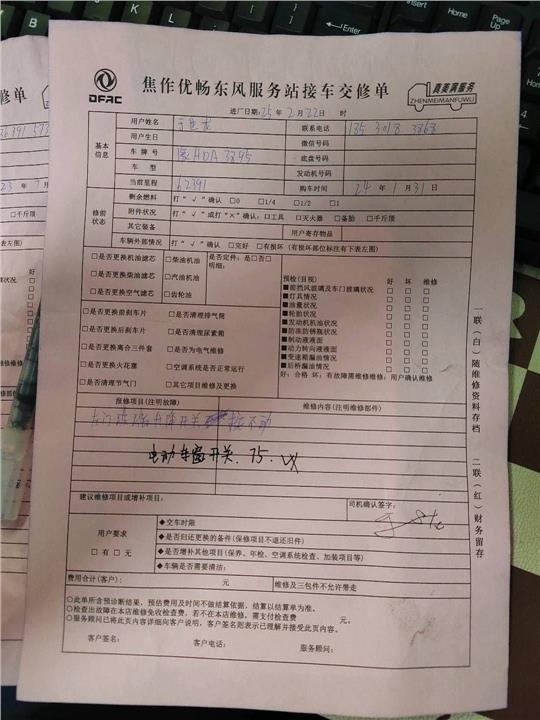 DFAC
焦作优畅东风服务站接车交修单
真要满服务
ZHENMEIMANFUWU
进厂日期:25年2月22日 时
基本信息
用户姓名
联系电话 185 3018 3868
用户生日
微信号码
车牌号 豫HDA 3895
底盘号码
车型
发动机号
当前里程 62391
购车时间 24年1月31日
修前状态
剩余燃油 打“√”确认 □0 □1/4 □1/2 □1
附件状况 打“√”或打“×”确认:□工具 □灭火器 □备胎 □千斤顶
其它装备
用户寄存物品
车辆外部情况 打“√”确认 □完好 □有损坏(有损坏部位标注有下表左图)
□是否更换机油滤芯 □柴油机油 是否定件:是□否□
□是否更换柴油滤芯 □汽油机油 明细:
□是否更换空气滤芯 □齿轮油
□是否更换前刹车片 □是否清理排气筒
□是否更换后刹车片 □是否清理尿素箱
□是否更换离合三件套 □是否为电气维修
□是否更换火花塞 □空调系统是否正常运行
□是否清理节气门 □其它项目维修及更换
预检(目视) 好 坏 维修
■前挡风玻璃及车门玻璃状况 □ □ □
■灯具情况 □ □ □
■油量状况 □ □ □
■轮胎状况 □ □ □
■发动机机油状况 □ □ □
■防冻防锈瓶状况 □ □ □
■制动液液面 □ □ □
■动力转向液液面 □ □ □
■变速箱漏油情况 □ □ □
■后桥漏油情况 □ □ □
好:合格 坏:有故障需维修维修:用户确认维修
报修项目(注明故障) 维修内容(注明维修部件)
左门玻璃升降开关 按不动
电动车窗开关. 75.
建议维修项目或增补项目:
司机确认签字:
用户要求
□有 □无
◆交车时限
◆是否归还更换的备件(保修项目不退还旧件)
◆是否增补其他项目(保养、年检、空调系统检查、加装项目等)
◆车辆是否需要清洁:
费用合计(客户): 元 维修及三包件不允许带走
○此单所含预诊断结果,预估费用及时间不做结算依据,结算以结算单为准。
○检查出故障在本店维修免收检查费,若不在本店维修,需支付检查费 元。
○服务顾问已将此页内容详细向客户说明,客户签名则表示已理解并接受此页内容。
客户签名: 客户电话: 服务顾问:
一联(白)随维修资料存档 二联(红)财务留存